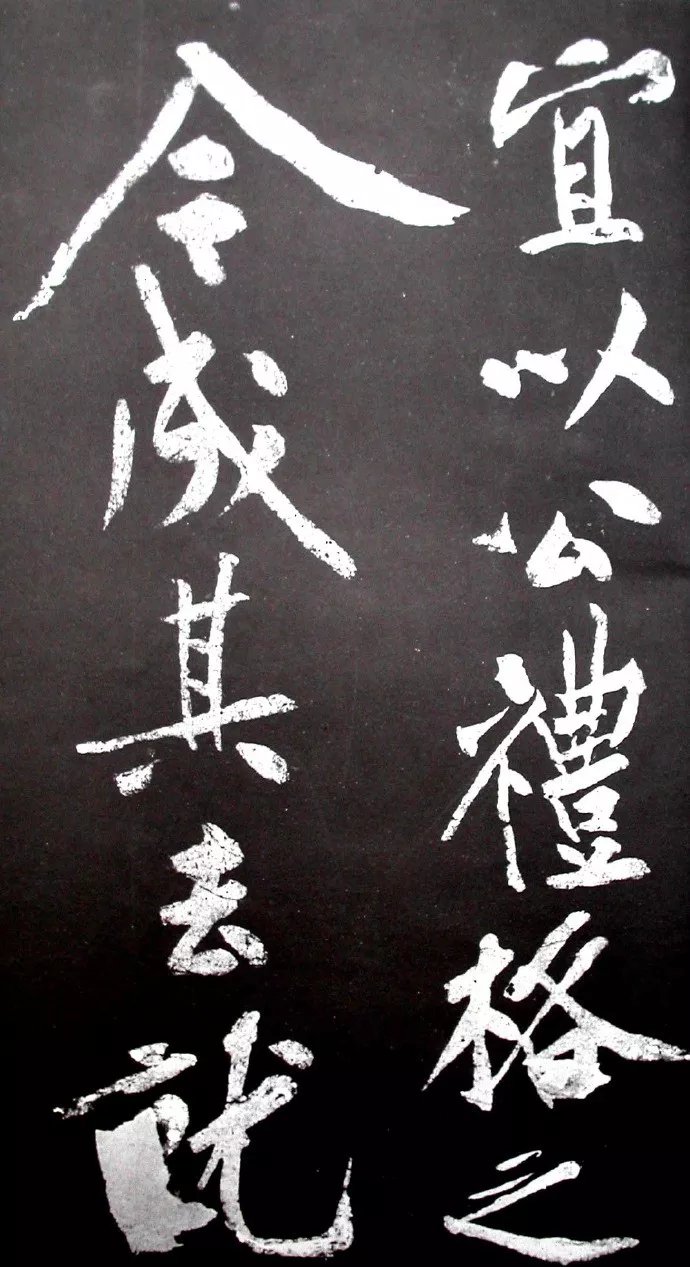 宜以公禮格之
令威其去就